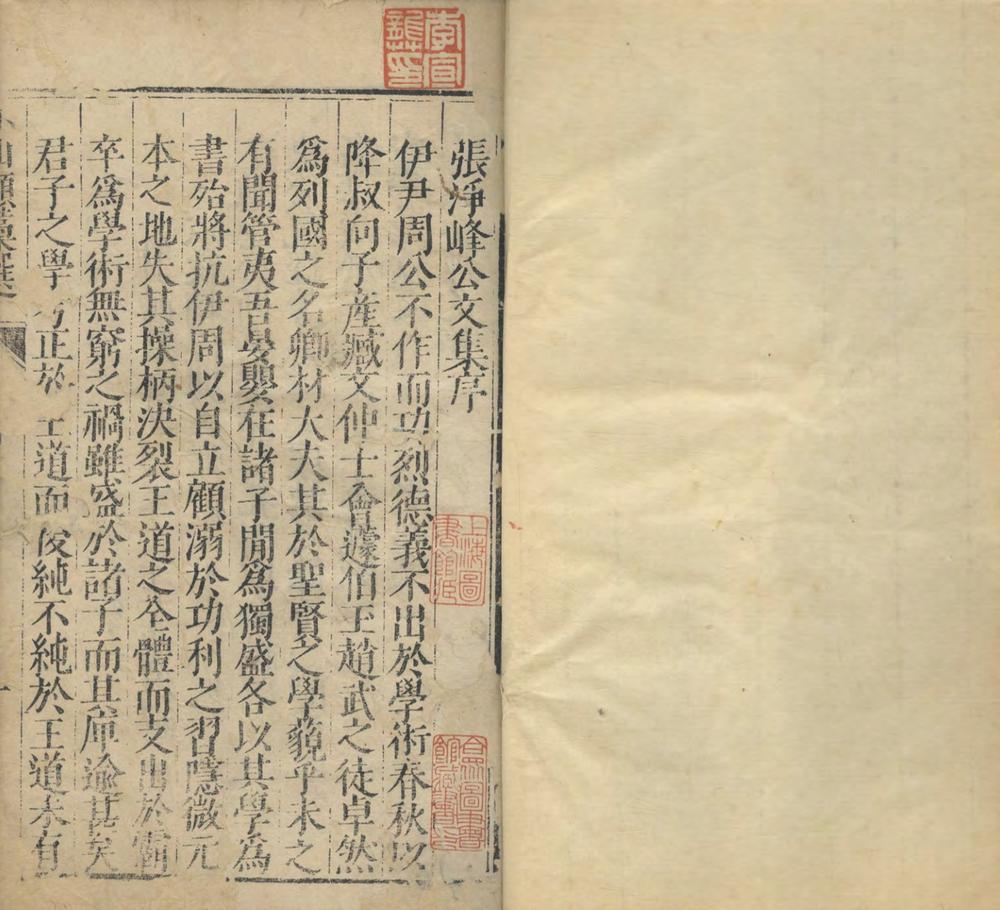 張淨峰公文集序
伊尹周公不作而功烈德義不出於學術春秋以
降叔向子產臧文仲士會蘧伯玉趙武之徒卓然
爲列國之名卿材大夫其於聖賢之學藐乎未之
有聞管夷吾晏嬰在諸子閒爲獨盛各以其學爲
書殆將抗伊周以自立顧溺於功利之習隱微元
本之地失其操柄決裂王道之全體而支出於霸
卒爲學術無窮之禍雖盛於諸子而其庳逾甚矣
君子之學 正於 王道而 純不純於王道未有
李宣龔印
上海圖書館藏
合眾圖書館藏書印